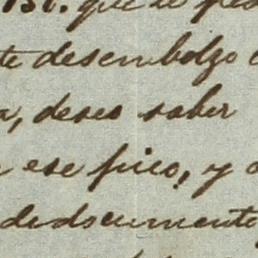 131. que se pes
te desembolzo
a, deseo saber
ese pico, y
dedocumento